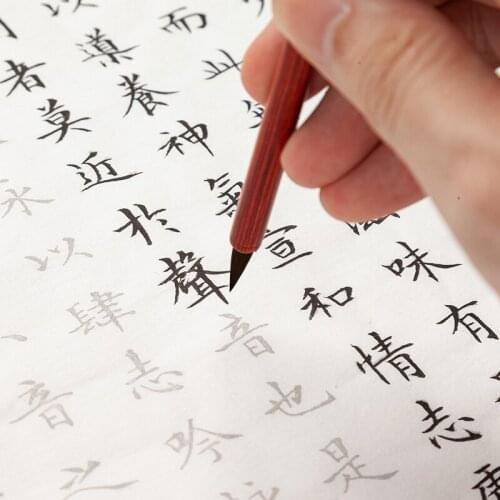 而此滋味有
以導養神氣宣和情志處
者莫近於聲音也是
永以肆志吟
音之